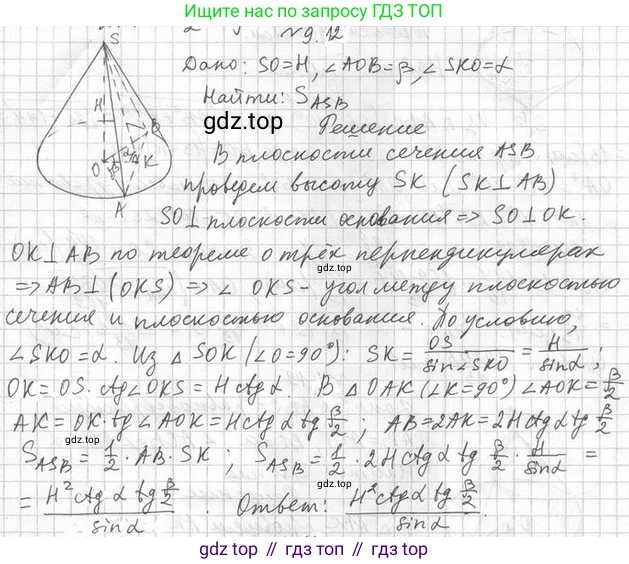 Ищите нас по запросу ГДЗ ТОП
№9.12
Дано: SO=H, ∠AOB=β, ∠SKO=α
Найти: S_ASB
gdz.top
Решение
В плоскости сечения ASB
проведем высоту SK (SK⊥AB)
SO⊥плоскости основания ⇒ SO⊥OK.
OK⊥AB по теореме о трёх перпендикулярах
gdz.top
⇒ AB⊥(OKS) ⇒ ∠OKS - угол между плоскостью
сечения и плоскостью основания. По условию,
∠SKO=α. Из △SOK (∠O=90°): SK = OS/sin∠SKO = H/sinα;
OK = OS·ctg∠OKS = Hctgα. В △OAK (∠K=90°) ∠AOK = β/2
AK = OK·tg∠AOK = Hctgα tg β/2; AB=2AK=2Hctgα tg β/2
gdz.top
S_ASB = 1/2·AB·SK; S_ASB = 1/2·2Hctgα tg β/2 · H/sinα =
= H²ctgα tg β/2 / sinα. Ответ: H²ctgα tg β/2 / sinα.
gdz.top
gdz.top
S
H
O
β
α
K
B
A
gdz.top // gdz.top // gdz.top